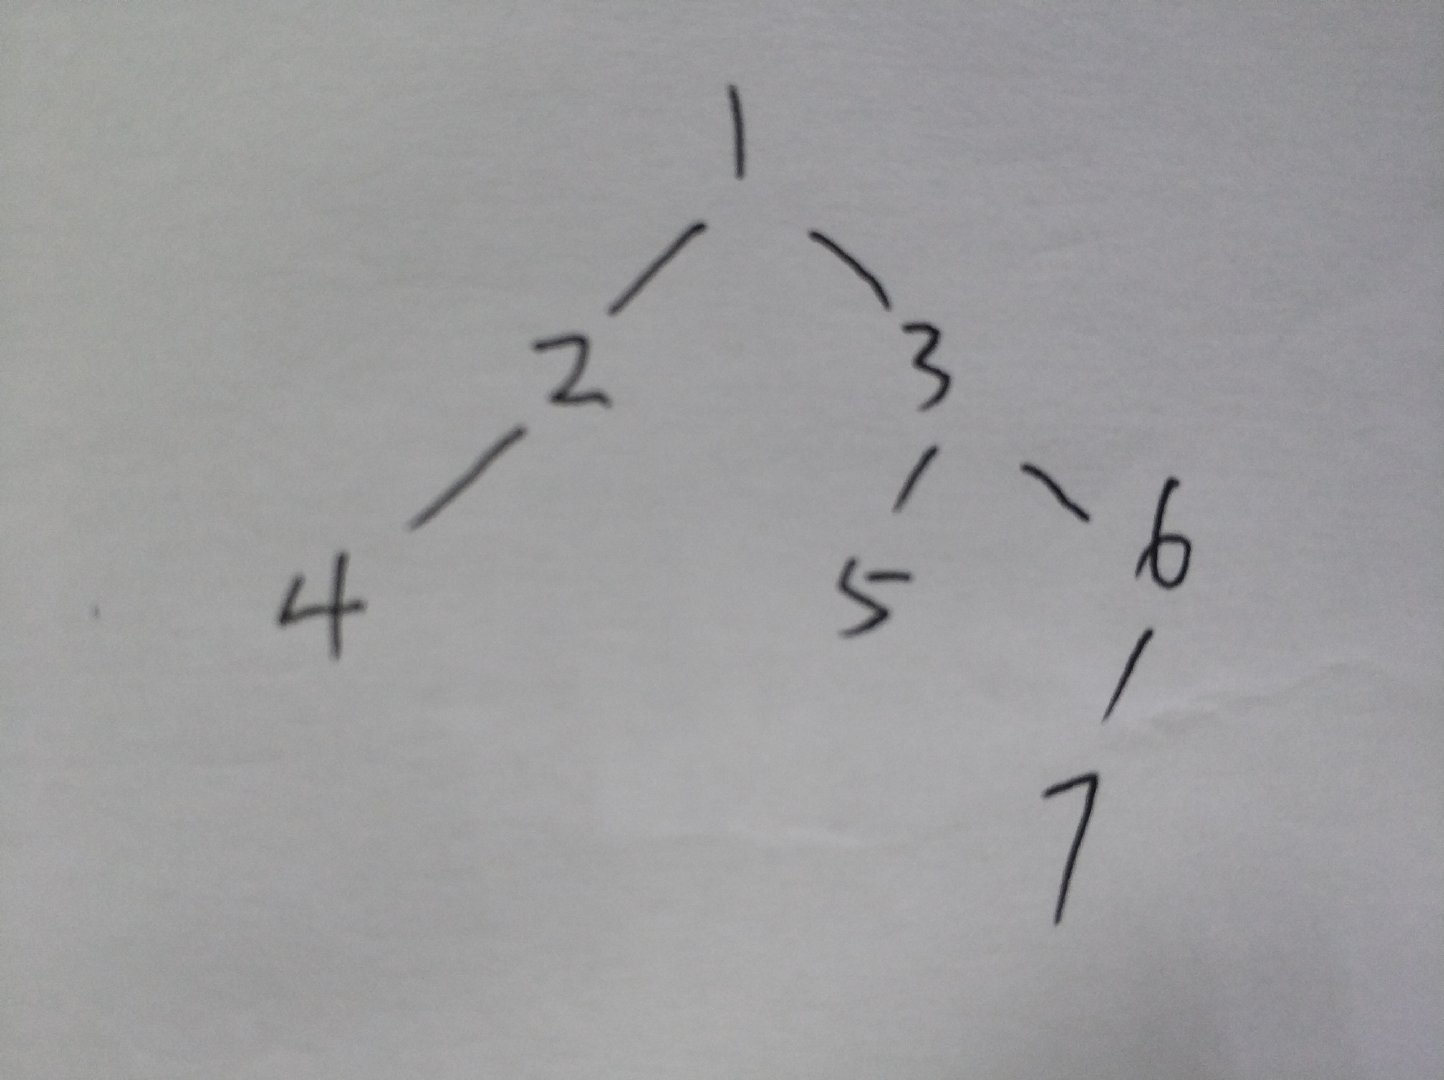 1
2 3
4 5 6
7